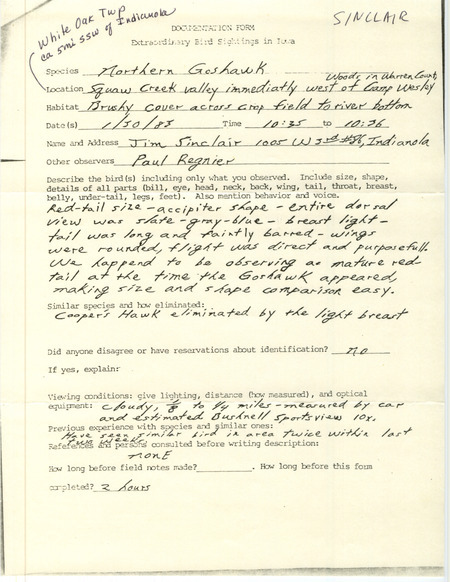 SINCLAIR
White Oak Twp
ca 5mi SSW of Indianola
DOCUMENTATION FORM
Extraordinary Bird Sightings in Iowa
Species Northern Goshawk
Woods in Warren County,
Location Squaw Creek valley immediatly west of Camp Wesley
Habitat Brushy cover across crop field to river bottom
Date(s) 1/30/83 Time 10:35 to 10:36
Name and Address Jim Sinclair 1005 W 3rd Indianola
Other observers Paul Regnier
Describe the bird(s) including only what you observed. Include size, shape,
details of all parts (bill, eye, head, neck, back, wing, tail, throat, breast,
belly, under-tail, legs, feet). Also mention behavior and voice.
Red-tail size - accipiter shape - entire dorsal
view was slate-gray-blue - breast light -
tail was long and faintly barred - wings
were rounded, flight was direct and purposefull.
We happend to be observing a mature red-
tail at the time the Goshawk appeared,
making size and shape comparison easy.
Similar species and how eliminated:
Cooper's Hawk eliminated by the light breast
Did anyone disagree or have reservations about identification? no
If yes, explain:
Viewing conditions: give lighting, distance (how measured), and optical
equipment: cloudy, 1/8 to 1/4 miles - measured by car
and estimated Bushnell Sportsview 10x.
Previous experience with species and similar ones:
Have seen similar bird in area twice within last
two weeks
References and persons consulted before writing description:
none
How long before field notes made? . How long before this form
completed? 2 hours